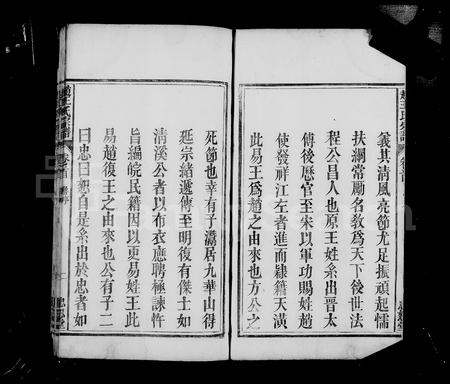 趙王氏宗譜 卷首
義其清風亮節尤足振頑起懦
扶綱常勵名敎爲天下後世法
程公昌人也原王姓系出晉太
傅後歷官至宋以軍功賜姓趙
使發祥江左者進而隸籍天潢
此易王爲趙之由來也方公之
死節也幸有子潛居九華山得
延宗緒遞傳至明復有傑士如
清溪公者以布衣應聘極諫忤
旨編皖民籍因以更易姓王此
易趙復王之由來也公有子二
曰忠曰恕自是系出於忠者如
趙王氏宗譜 卷首